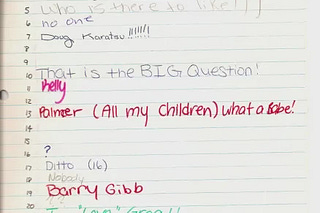 5 Who is there to like!!
6 no one
7 Doug Karatsu!!!!!!
8
9
10 That is the BIG Question!
11 Kelly
12 Palmer (All my Children) What a Babe!
13
14
15
16 ?
17 Ditto (16)
18 Nobody
19 Barry Gibb
20 I "Love" Greg!!